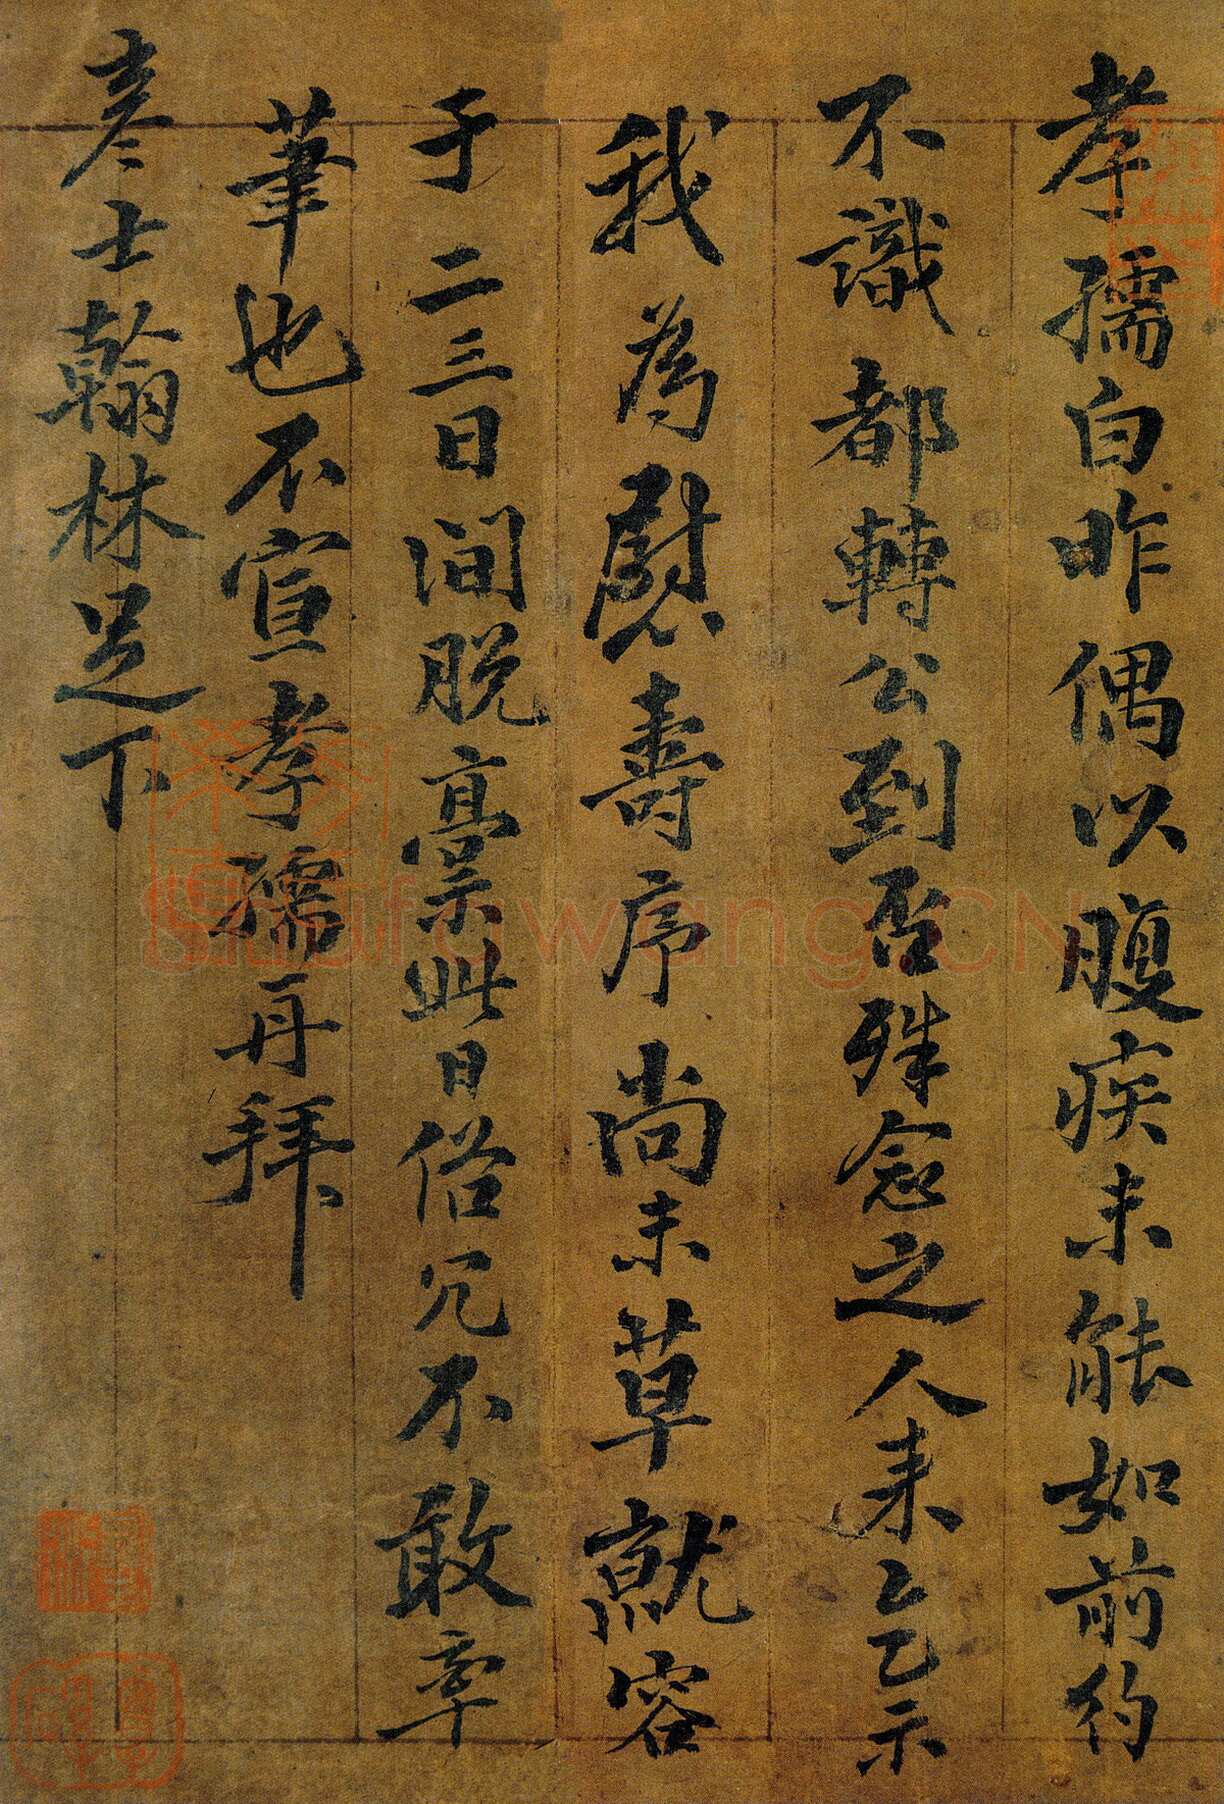 孝孺白昨偶以腹疾未能如前約
不識都轉公到否殊念之人来之乞示
我為慰壽序尚未草就容
于二三日间脱稾此日俗冗不敢牽
筆也不宣孝孺再拜
彦士翰林足下
shufawang.CN